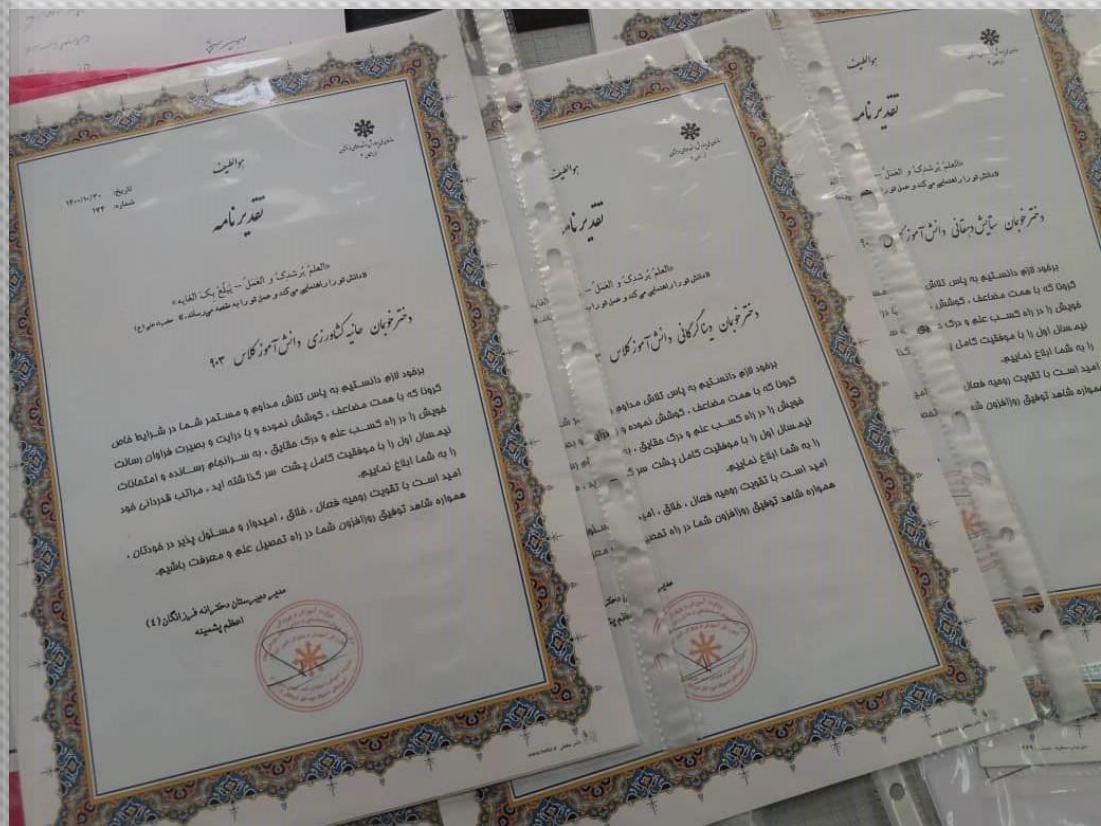 هو اللطیف
تاریخ: ۱۴۰۰/۱۰/۳۰
شماره: ۱۷۴
تقدیرنامه
«العلمُ یُرشدکَ و العَمَلُ – یَبلُغُ بِکَ الغایه»
«دانش تو را راهنمایی می کند و عمل تو را به مقصد می رساند.» حضرت علی (ع)
دختر خوبمان حانیه کشاورزی دانش آموز کلاس ۹۰۳
برخود لازم دانستیم به پاس تلاش مداوم و مستمر شما در شرایط خاص
کرونا که با همت مضاعف ، کوشش نموده و با درایت و بصیرت فراوان رسالت
خویش را در راه کسب علم و درک حقایق ، به سرانجام رسانده و امتحانات
نیمسال اول را با موفقیت کامل پشت سر گذاشته اید ، مراتب قدردانی خود
را به شما ابلاغ نماییم.
امید است با تقویت روحیه فعال ، خلاق ، امیدوار و مسئول پذیر در خودتان ،
همواره شاهد توفیق روزافزون شما در راه تحصیل علم و معرفت باشیم.
مدیر دبیرستان دخترانه فرزانگان (۴)
اعظم پشمینه
هو اللطیف
تقدیرنامه
«العلمُ یُرشدکَ و العَمَلُ – یَبلُغُ بِکَ الغایه
«دانش تو را راهنمایی می کند و عمل تو را به
دختر خوبمان دینا گرکانی دانش آموز کلاس
برخود لازم دانستیم به پاس تلاش مداوم و
کرونا که با همت مضاعف ، کوشش نموده و
خویش را در راه کسب علم و درک حقایق ، به
نیمسال اول را با موفقیت کامل پشت سر
را به شما ابلاغ نماییم.
امید است با تقویت روحیه فعال ، خلاق ، امید
همواره شاهد توفیق روزافزون شما در راه تحصیل
هو اللطیف
تقدیرنامه
«العلمُ یُرشدکَ و العَمَلُ –
«دانش تو را راهنمایی می کند و عمل تو را به
دختر خوبمان ستایش دهقانی دانش آموز کلاس
برخود لازم دانستیم به پاس تلاش
کرونا که با همت مضاعف ، کوشش
خویش را در راه کسب علم و درک
نیمسال اول را با موفقیت کامل
را به شما ابلاغ نماییم.
امید است با تقویت روحیه فعال
همواره شاهد توفیق روزافزون